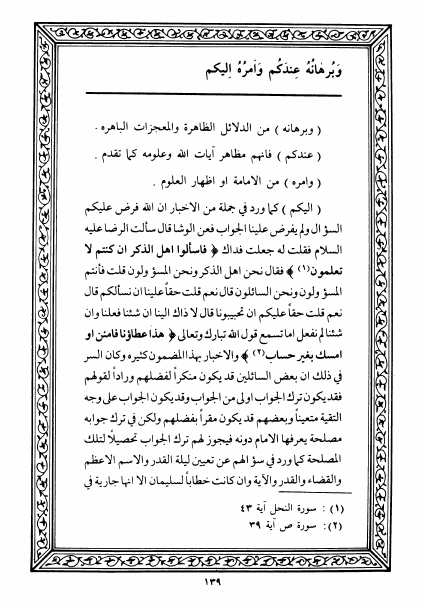 وَبُرهانُهُ عِندَكُم وَاَمرُهُ اِليكم
( وبرهانه ) من الدلائل الظاهرة والمعجزات الباهره .
( عندكم ) فانهم مظاهر آيات الله وعلومه كما تقدم .
( وامره ) من الامامة او اظهار العلوم .
( اليكم ) كما ورد في جملة من الاخبار ان الله فرض عليكم
السؤال ولم يفرض علينا الجواب فعن الوشا قال سألت الرضا عليه
السلام فقلت له جعلت فداك ﴿ فاسألوا اهل الذكر ان كنتم لا
تعلمون(١) ﴾ فقال نحن اهل الذكر ونحن المسؤولون قلت فأنتم
المسؤولون ونحن السائلون قال نعم قلت حقاً علينا ان نسألكم قال
نعم قلت حقاً عليكم ان تجيبونا قال لا ذاك الينا ان شئنا فعلنا وان
شئنا لم نفعل اما تسمع قول الله تبارك وتعالى ﴿ هذا عطاؤنا فامنن او
امسك بغير حساب(٢) ﴾ والاخبار بهذا المضمون كثيره وكان السر
في ذلك ان بعض السائلين قد يكون منكراً لفضلهم وراداً لقولهم
فقد يكون ترك الجواب اولى من الجواب وقد يكون الجواب على وجه
التقية متعيناً وبعضهم قد يكون مقراً بفضلهم ولكن في ترك جوابه
مصلحة يعرفها الامام دونه فيجوز لهم ترك الجواب تحصيلاً لتلك
المصلحة كما ورد في سؤالهم عن تعيين ليلة القدر والاسم الاعظم
والقضاء والقدر والآية وان كانت خطاباً لسليمان الا انها جارية في
(١) : سورة النحل آية ٤٣
(٢) : سورة ص آية ٣٩
١٣٩